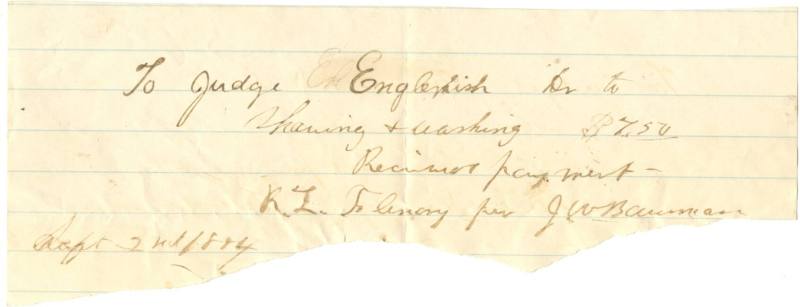 To Judge English Dr to
Shaving + washing $7.50
Recieved payment –
R. L. per J W Bauman
Sept 2nd 1884